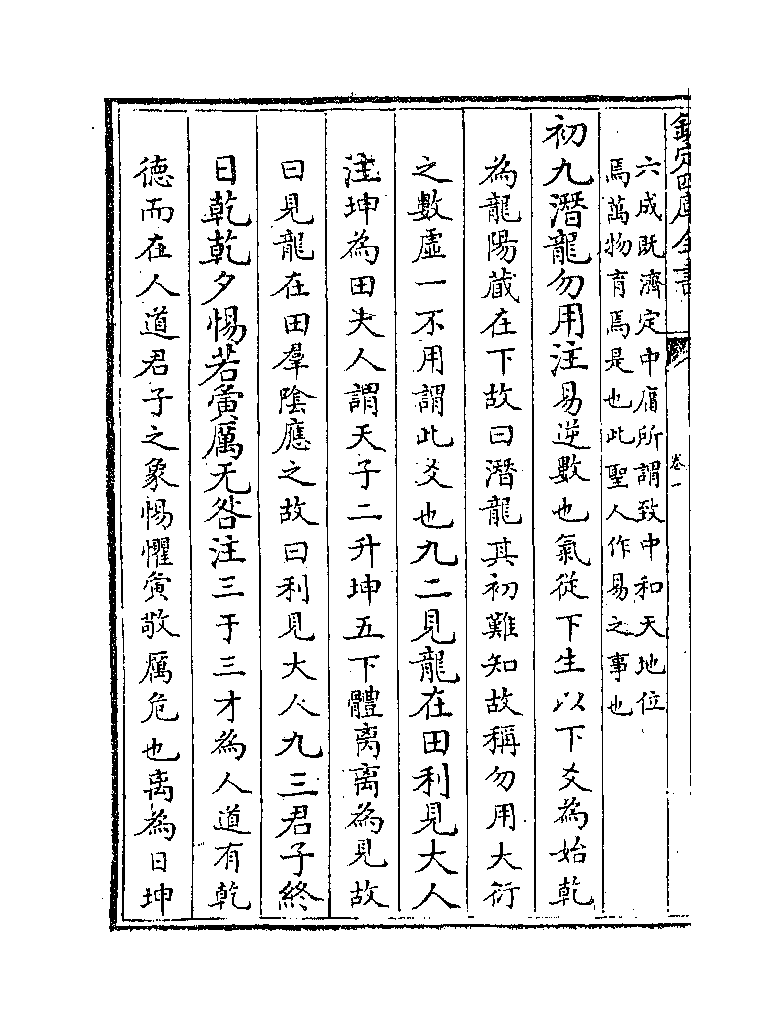 欽定四庫全書
卷一
六成既濟定中庸所謂致中和天地位
焉萬物育焉是也此聖人作易之事也
初九潛龍勿用注易逆數也氣從下生以下爻為始乾
為龍陽蔵在下故曰潛龍其初難知故稱勿用大衍
之數虛一不用謂此爻也九二見龍在田利見大人
注坤為田大人謂天子二升坤五下體离离為見故
曰見龍在田羣陰應之故曰利見大人九三君子終
日乾乾夕惕若夤厲无咎注三于三才為人道有乾
德而在人道君子之象惕懼夤敬厲危也离為日坤